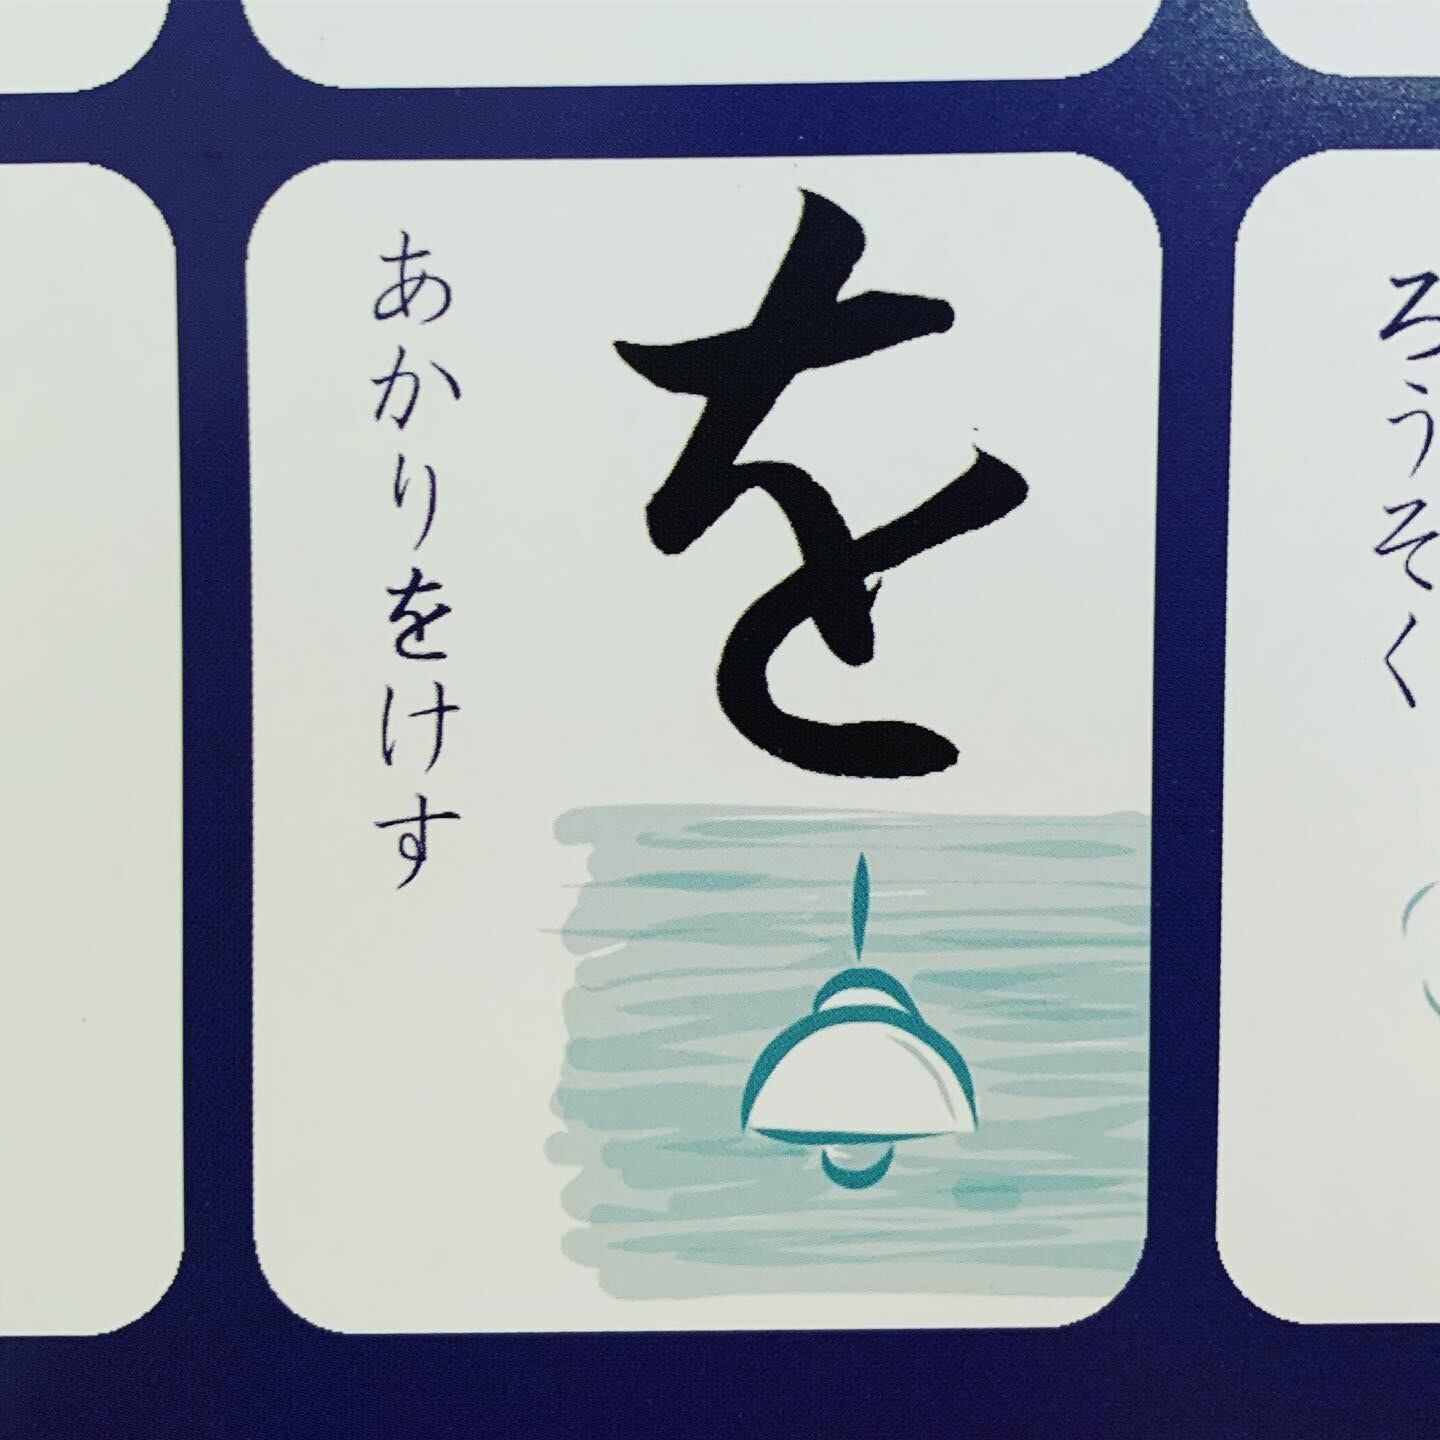 ろうそく
を
あかりをけす